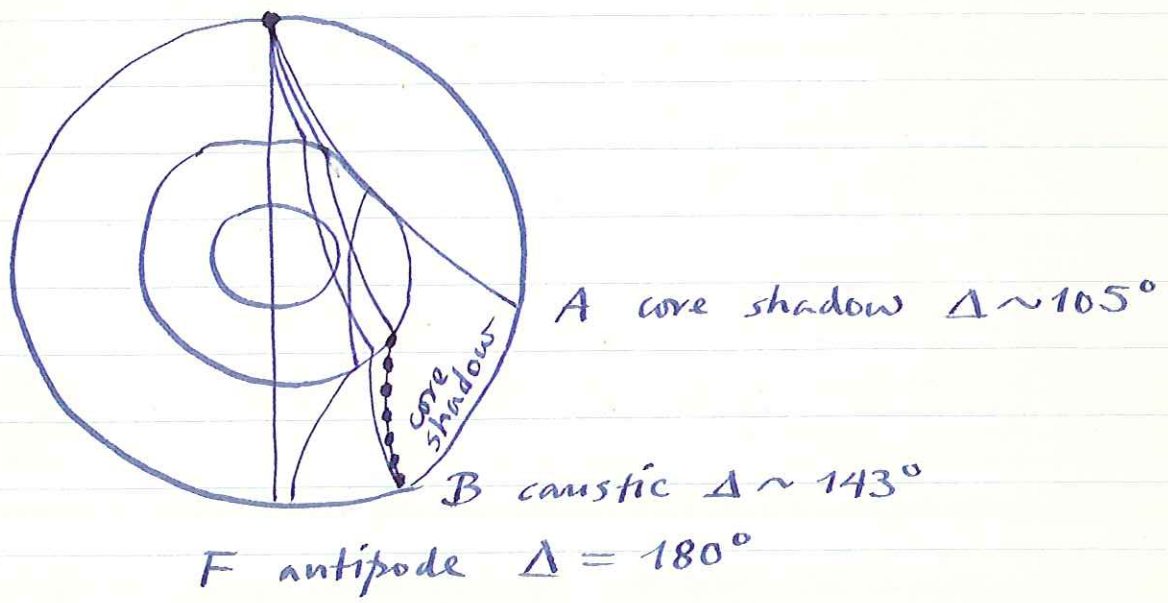 A core shadow Δ ~ 105°
core
shadow
B caustic Δ ~ 143°
F antipode Δ = 180°